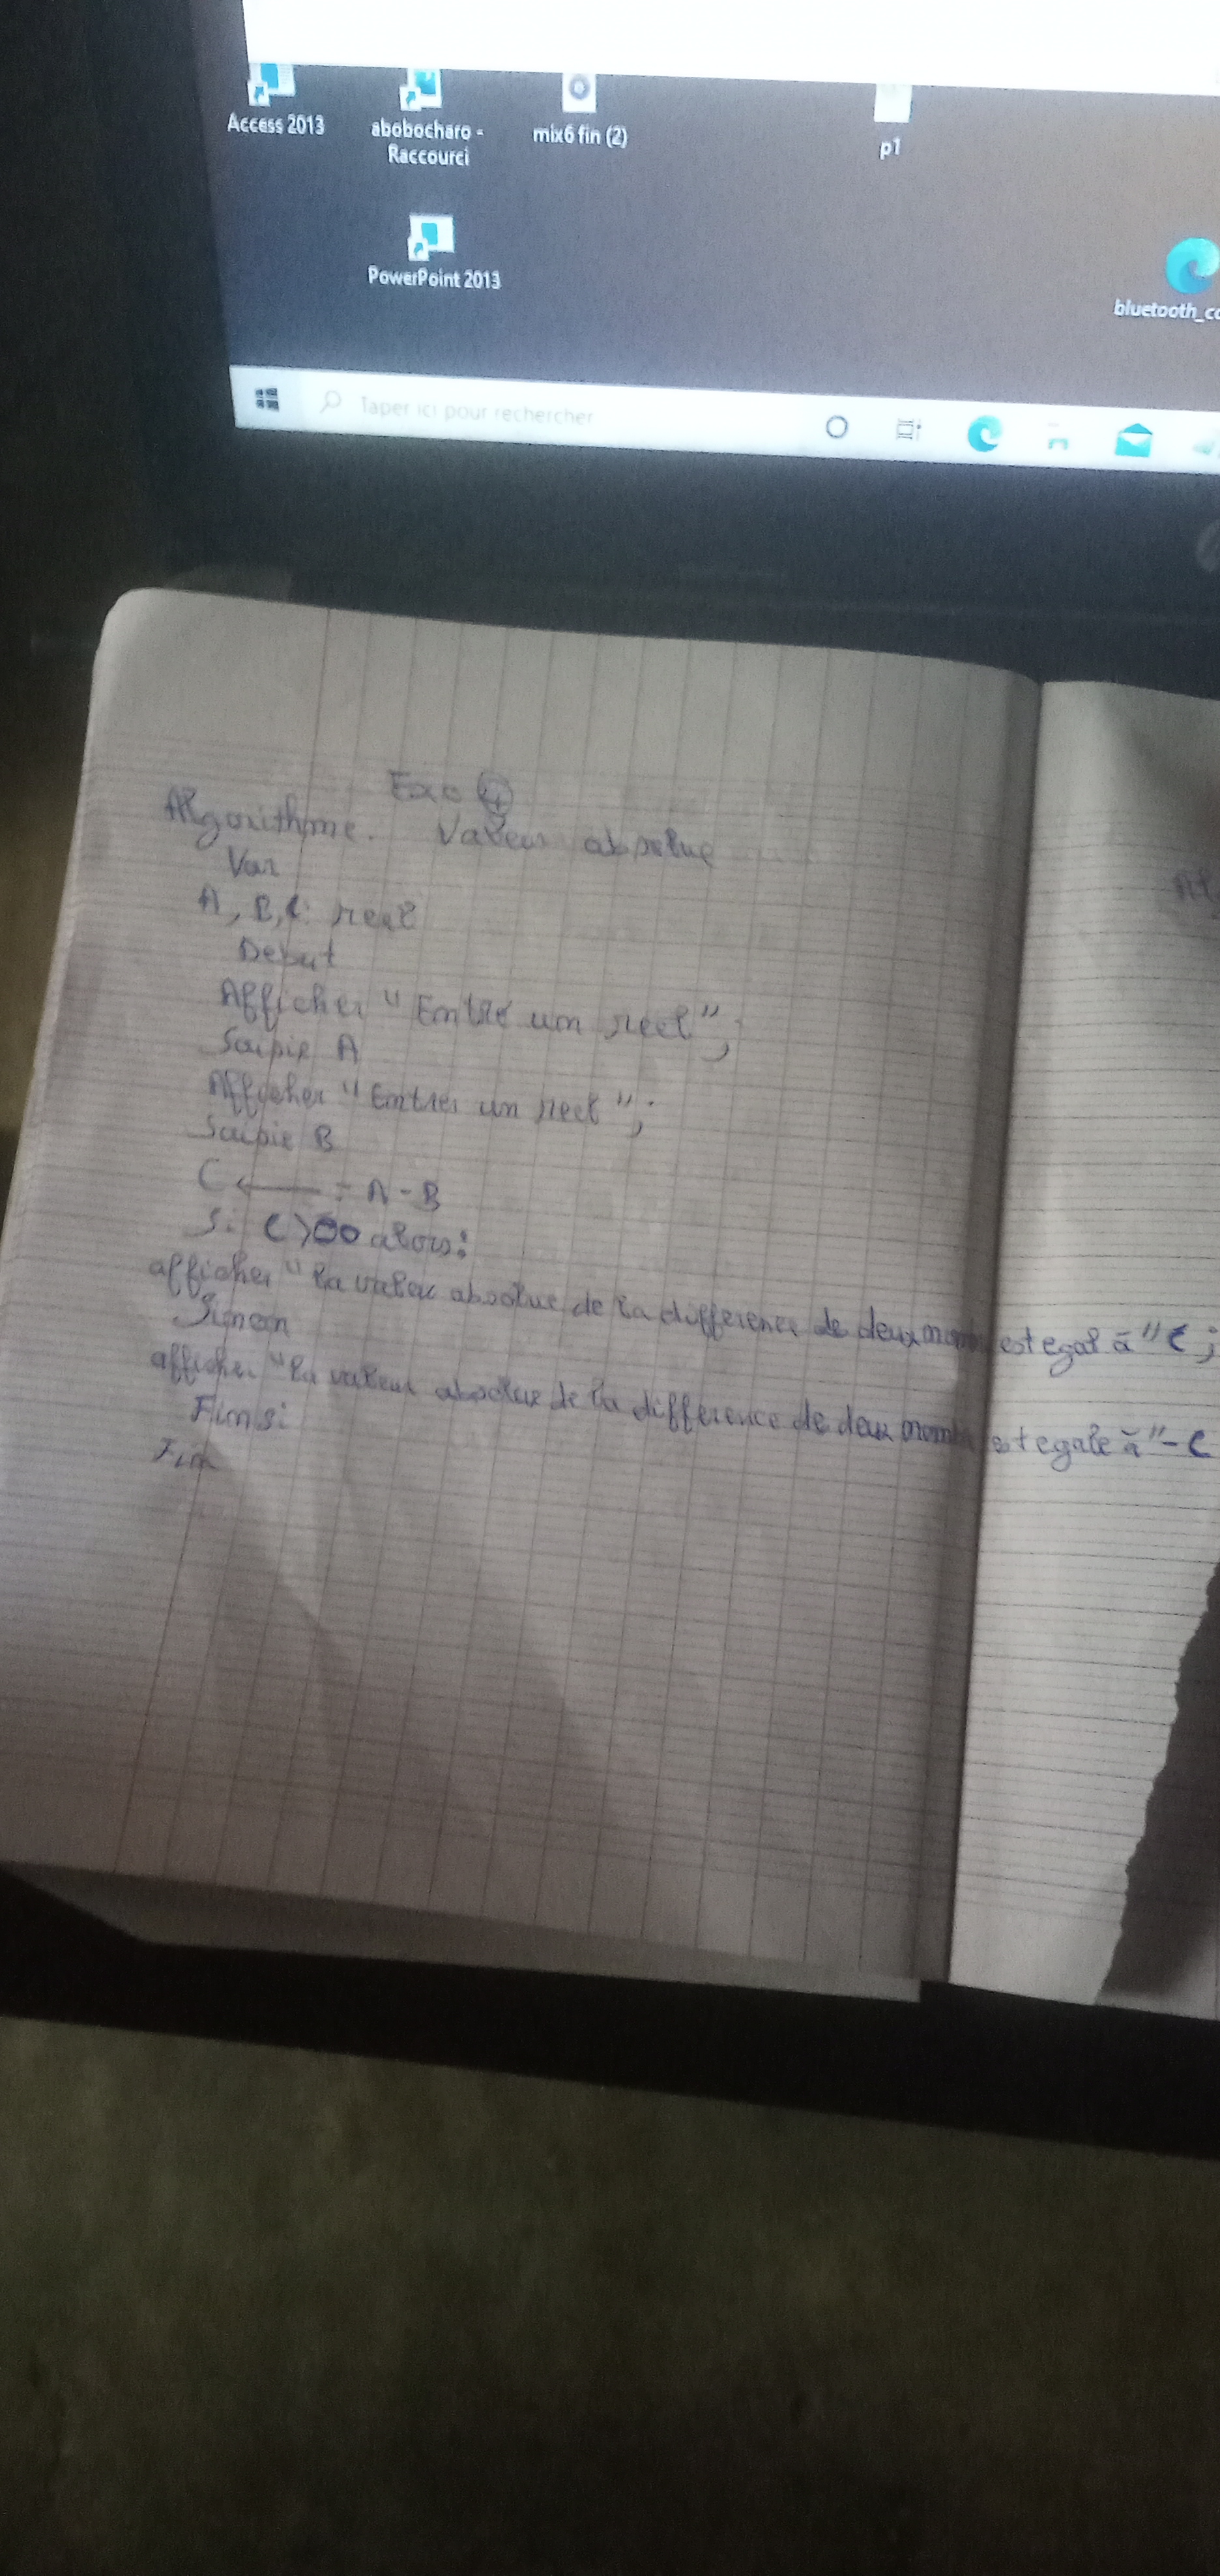 Access 2013
abobocharo -
Raccourci
mix6 fin (2)
p1
PowerPoint 2013
bluetooth_co
Taper ici pour rechercher
Exo 4
Algorithme. Valeur absolue
Var
A, B, C: reel
Debut
Afficher "Entré un reel";
Saisie A
Afficher "Entrer un reel";
Saisie B
C ← = A - B
Si C > 0 alors:
afficher "la valeu absolue de la difference de deux est egal à" C ;
Sinon
afficher "la valeur absolue de la difference de deux est egale à" - C
Finsi
Fin